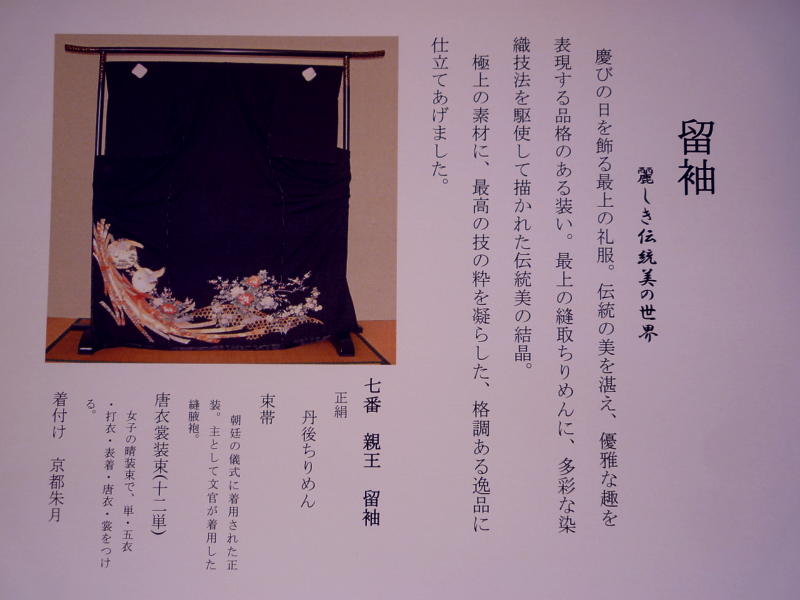 留袖
麗しき伝統美の世界
慶びの日を飾る最上の礼服。伝統の美を湛え、優雅な趣を
表現する品格のある装い。最上の縫取ちりめんに、多彩な染
織技法を駆使して描かれた伝統美の結晶。
極上の素材に、最高の技の粋を凝らした、格調ある逸品に
仕立てあげました。
七番 親王 留袖
正絹
丹後ちりめん
束帯
朝廷の儀式に着用された正
装。主として文官が着用した
縫腋袍。
唐衣裳装束(十二単)
女子の晴装束で、単・五衣
・打衣・表着・唐衣・裳をつけ
る。
着付け 京都朱月